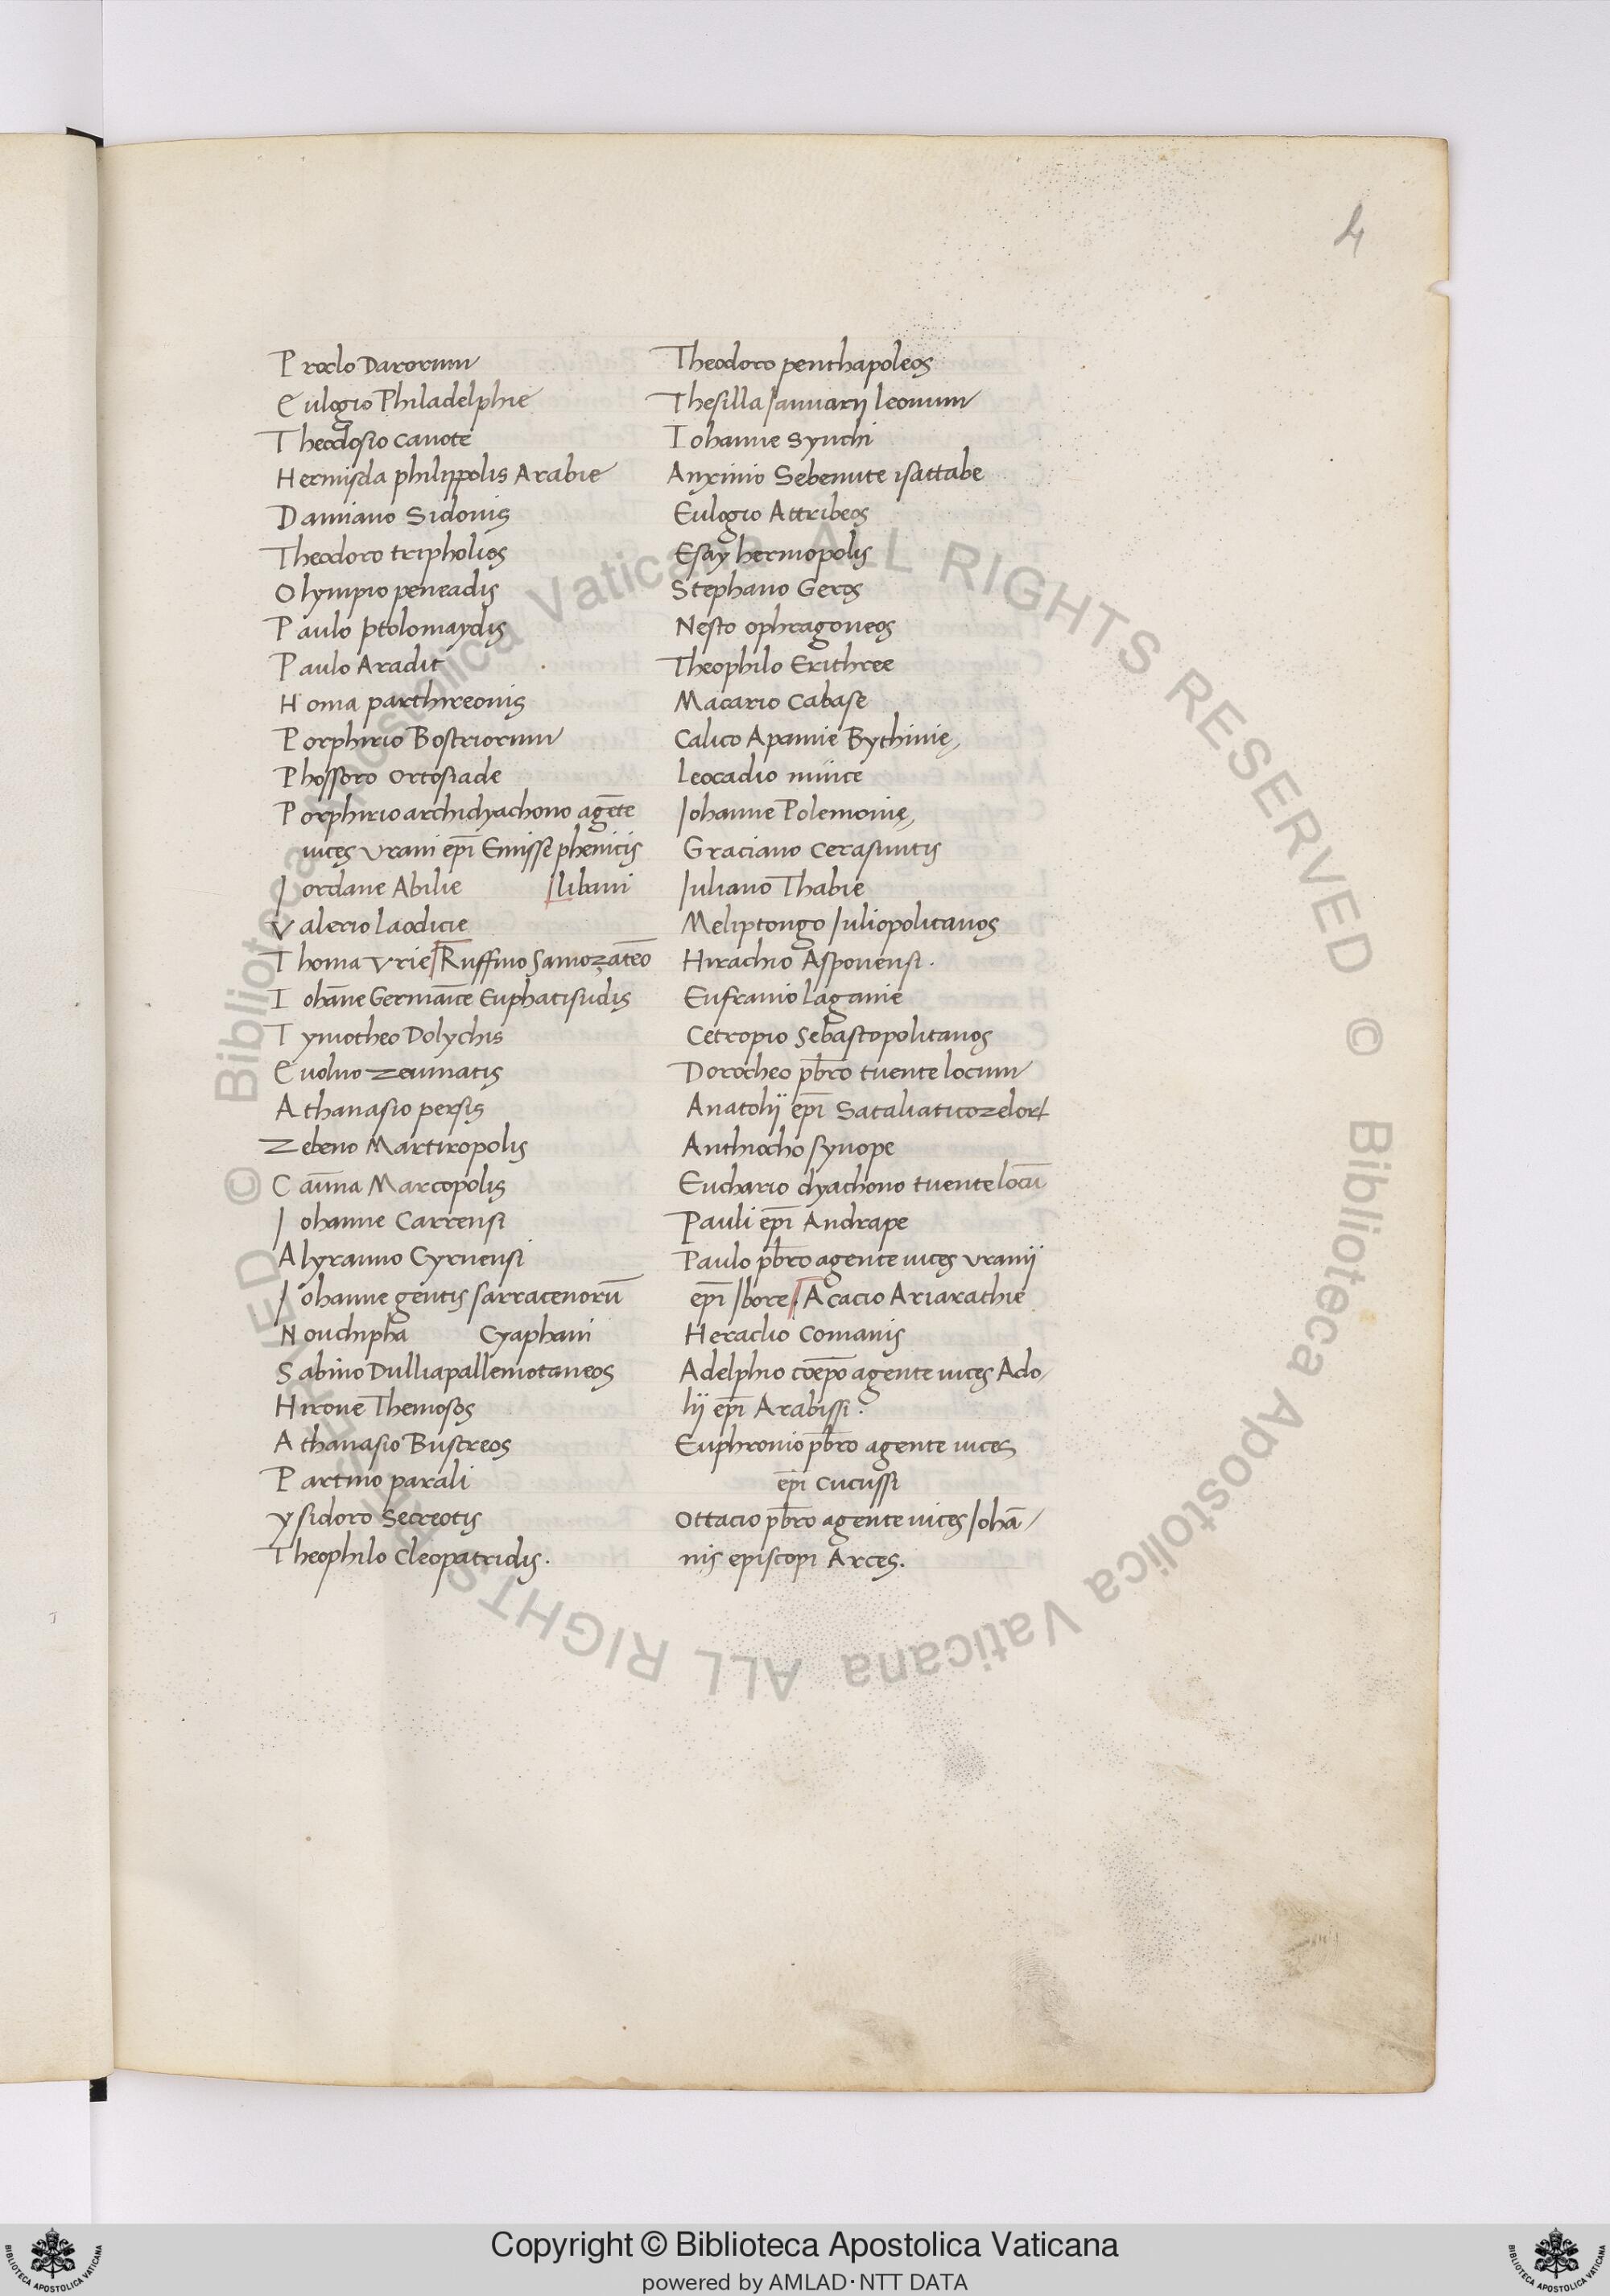 4
Proclo Darorum
Eulogio Philadelphie
Theodosio canote
Hermisda philippolis Arabie
Damiano Sidonis
Theodoro tripholios
Olympio peneadis
Paulo ptolomaydis
Paulo Aradit
Homa parthreonis
Porphirio Bostriorum
Phossoro ortosiade
Porphirio archidyachono agēte
uices vrani epī Emisse phenicis
Jordane Abilie libani
Valerio laodicie
Thoma vrie Ruffino Samozatēo
Iohāne Germaīce Euphatisudis
Tymotheo Dolychis
Euolno zeumatis
Athanasio persis
Zebeno Martiropolis
Caūma Marcopolis
Johanne Carrensi
Alyranno Cyrnensi
Johanne gentis sarracenorū
Nouchipha Cyaphani
Sabino Dulliapallemotaneos
Hirone Themosos
Athanasio Bustreos
Partino parali
ysidoro Secreotis
Theophilo Cleopatridis.
Theodoro penthapoleos
Thesilla Januarij leonum
Iohanne Synchi
Anxinio Sebenute isattabe
Eulogio Attribeos
Esay hermopolis
Stephano Geros
Nesto ophragoneos
Theophilo Erithree
Macario Cabase
Calico Apamie Bythinię,
Leocadio
Johanne Polemonię,
Graciano cerasuntis
Juliano Thabie
Meliptongo Juliopolitanos
Hirachio Asponensi.
Eufranio laganie
Cetropio Sebastopolitanos
Dorotheo pb̄ro tuente locum
Anatolij epī Sataliaticozelor
Anthiocho synope
Euchario dyachono tuente locū
Pauli epī Andrape
Paulo pb̄ro agente uices vranij
epī Ibore. Acacio Ariarathie
Heraclio Comanis
Adelphio coēpo agente uices Ado/
lij epī Arabissi.
Euphronio pb̄ro agente uices
epī cucussi
Ottacio pb̄ro agente uices Johā/
nis episcopi Arces.
© Biblioteca Apostolica Vaticana ALL RIGHTS RESERVED © Biblioteca Apostolica Vaticana ALL RIGHTS RESERVED
Copyright © Biblioteca Apostolica Vaticana
powered by AMLAD·NTT DATA
BIBLIOTECA APOSTOLICA VATICANA
BIBLIOTECA APOSTOLICA VATICANA